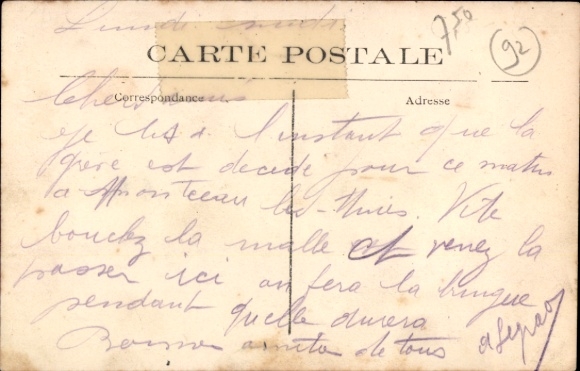 Lundi midi
7,50
92
CARTE POSTALE
Correspondance
Adresse
Chers amis
Je lis à l'instant que la
grève est décidé pour ce matin
a Montceau les-Mines. Vite
bouclez la malle et venez la
passer ici on fera la bringue
pendant qu'elle durera
Bonne amitié de tous